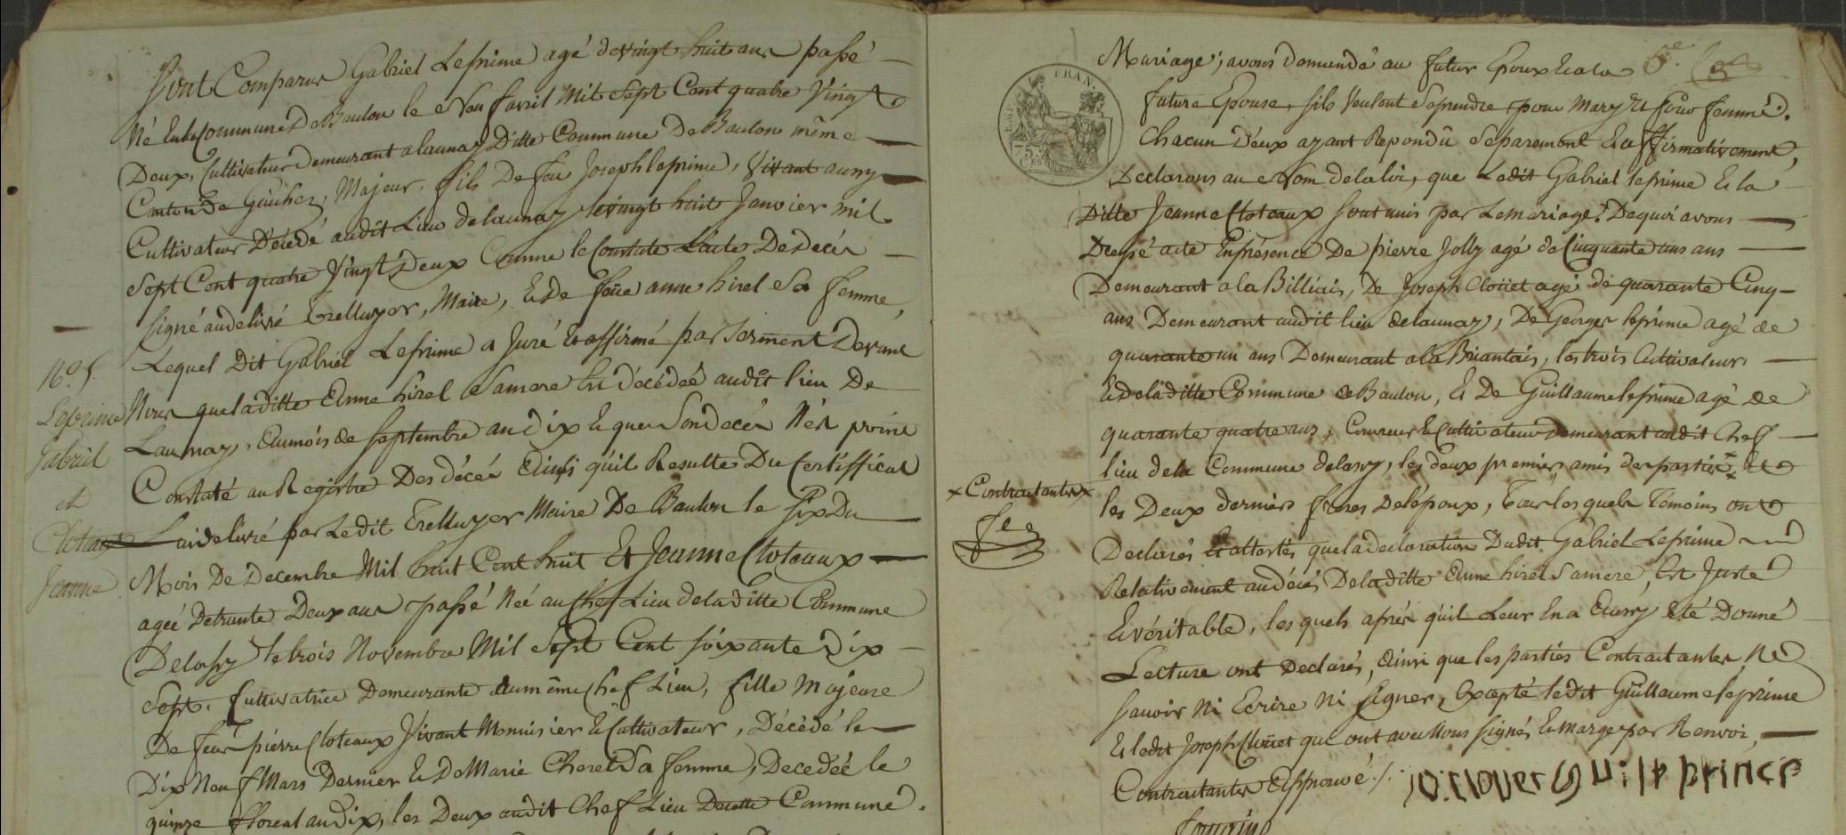 Sont Comparus Gabriel Leprince agé de vingt huit ans passé
Né en la Commune De Baulon le neuf avril Mil Sept Cent quatre Vingt
Deux, Cultivateur demeurant a launay Ditte Commune De Baulon même
Canton de Guichen, Majeur, fils De feu Joseph leprince, Vivant aussy
Cultivateur Décédé audit Lieu de launay le vingt huit Janvier mil
Sept Cent quatre Vingt Deux Comme le Constate L'acte De décès
Signé au delivré Trelluyer, Maire, Et de feüe anne hirel Sa femme,
Lequel Dit Gabriel Leprince a Juré Et affirmé par Serment Devant
Nous que laditte Anne hirel Sa mere Est décédée audit lieu De
Launay, Au mois de Septembre an Dix Et que Son decès N'est point
Constaté au Registre Des décès Ainsi qu'il Resulte Du Certifficat
Lui delivré par Ledit Trelluyer Maire De Baulon le Six Du
Mois De Decembre Mil huit Cent huit Et Jeanne Cloteaux
agée De trente Deux ans passé Née au Chef Lieu de laditte Commune
De lassy le trois Novembre Mil Sept Cent Soixante Dix
Sept, Cultivatrice Demeurante au même Chef Lieu, fille Majeure
De feu pierre Cloteaux Vivant Menuisier Et Cultivateur, Décédé le
Dix Neuf Mars Dernier Et De Marie Cherel Sa femme, Decedée le
quinze floreal an dix, les Deux audit Chef Lieu De cette Commune.
N.° 5
Leprince
Gabriel
et
Cloteaux
Jeanne
Mariage; avons demandé au futur Epoux Et a la
future Epouse, S'ils Veulent Se prendre pour Mary Et pour femme.
Chacun D'eux ayant Repondû Séparement Et affirmativement,
Declarons au Nom de la loi, que Ledit Gabriel leprince Et la
Ditte Jeanne Cloteaux Sont unis par Le mariage. De quoi avons
Dressé acte En présence De pierre Jolly agé de Cinquante ans
Demeurant a la Billiais, De Joseph Cloüet agé de quarante Cinq
ans Demeurant audit lieu de launay, De Georges leprince agé de
quarante un ans Demeurant a la Briantais, les trois Cultivateurs
Et de laditte Commune de Baulon, Et De Guillaume leprince agé de
quarante quatre ans, Couvreur Et Cultivateur Demeurant audit Chef
lieu de la Commune de lassy, les deux premiers amis des parties Et
les Deux derniers freres De l'époux, Tous les quels Témoins ont
Declarés Et attestés que la declaration Dudit Gabriel Leprince
Relativement au décès De laditte Anne hirel Sa mere, Est Juste
Et véritable, les quels après qu'il Leur En a Eté Donné
Lecture ont Declarés, Ainsi que les parties Contractantes Ne
Savoir Ni Ecrire Ni Signer, Excepté ledit Guillaume leprince
Et ledit Joseph Cloüet qui ont avec Nous Signés En marge par Renvoi,
Contractantes Approuvé./. Jo: clouet Gui le prince
x Contractantes x